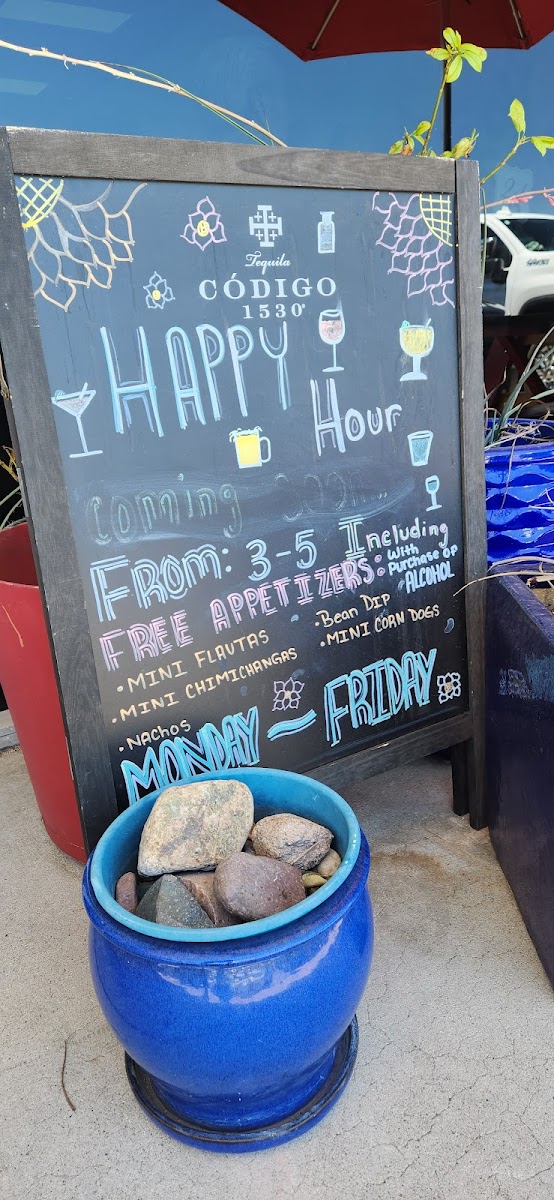 Tequila
CÓDIGO
1530
HAPPY
Hour
Coming Soon...
FROM: 3-5 Including
FREE APPETIZERS: With Purchase of ALCOHOL
• MINI FLAUTAS
• MINI CHIMICHANGAS
• NACHOS
• Bean Dip
• MINI CORN DOGS
MONDAY – FRIDAY